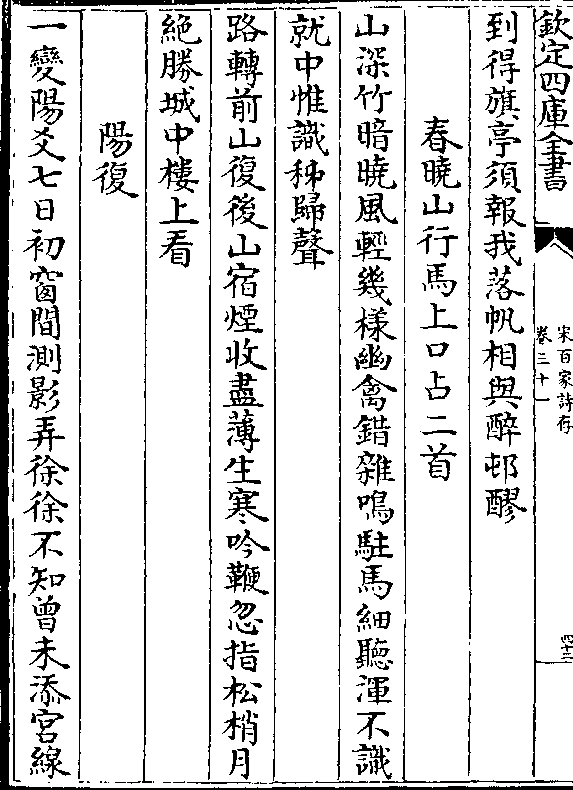 欽定四庫全書
宋百家詩存
卷三十一
四十二
到得旗亭須報我落帆相與醉邨醪
春曉山行馬上口占二首
山深竹暗曉風輕幾様幽禽錯雜鳴駐馬細聽渾不識
就中惟識秭歸聲
路轉前山復後山宿煙收盡薄生寒吟鞭忽指松梢月
絶勝城中樓上看
陽復
一變陽爻七日初窗間測影弄徐徐不知曾未添宮線